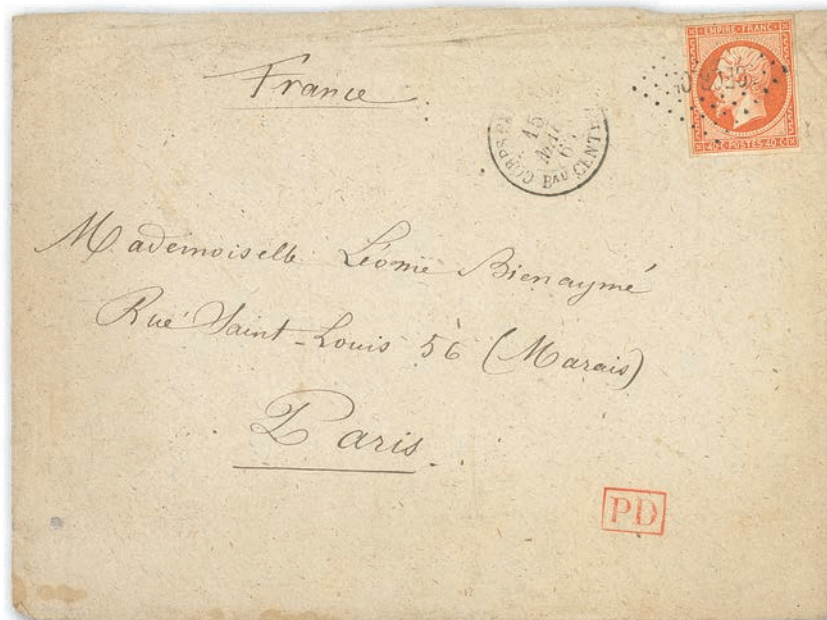 EMPIRE FRANC
40 C POSTES 40 C
France
15
BAU CENT
Mademoiselle Léonie Bienaymé
Rue Saint-Louis 56 (Marais)
Paris
PD